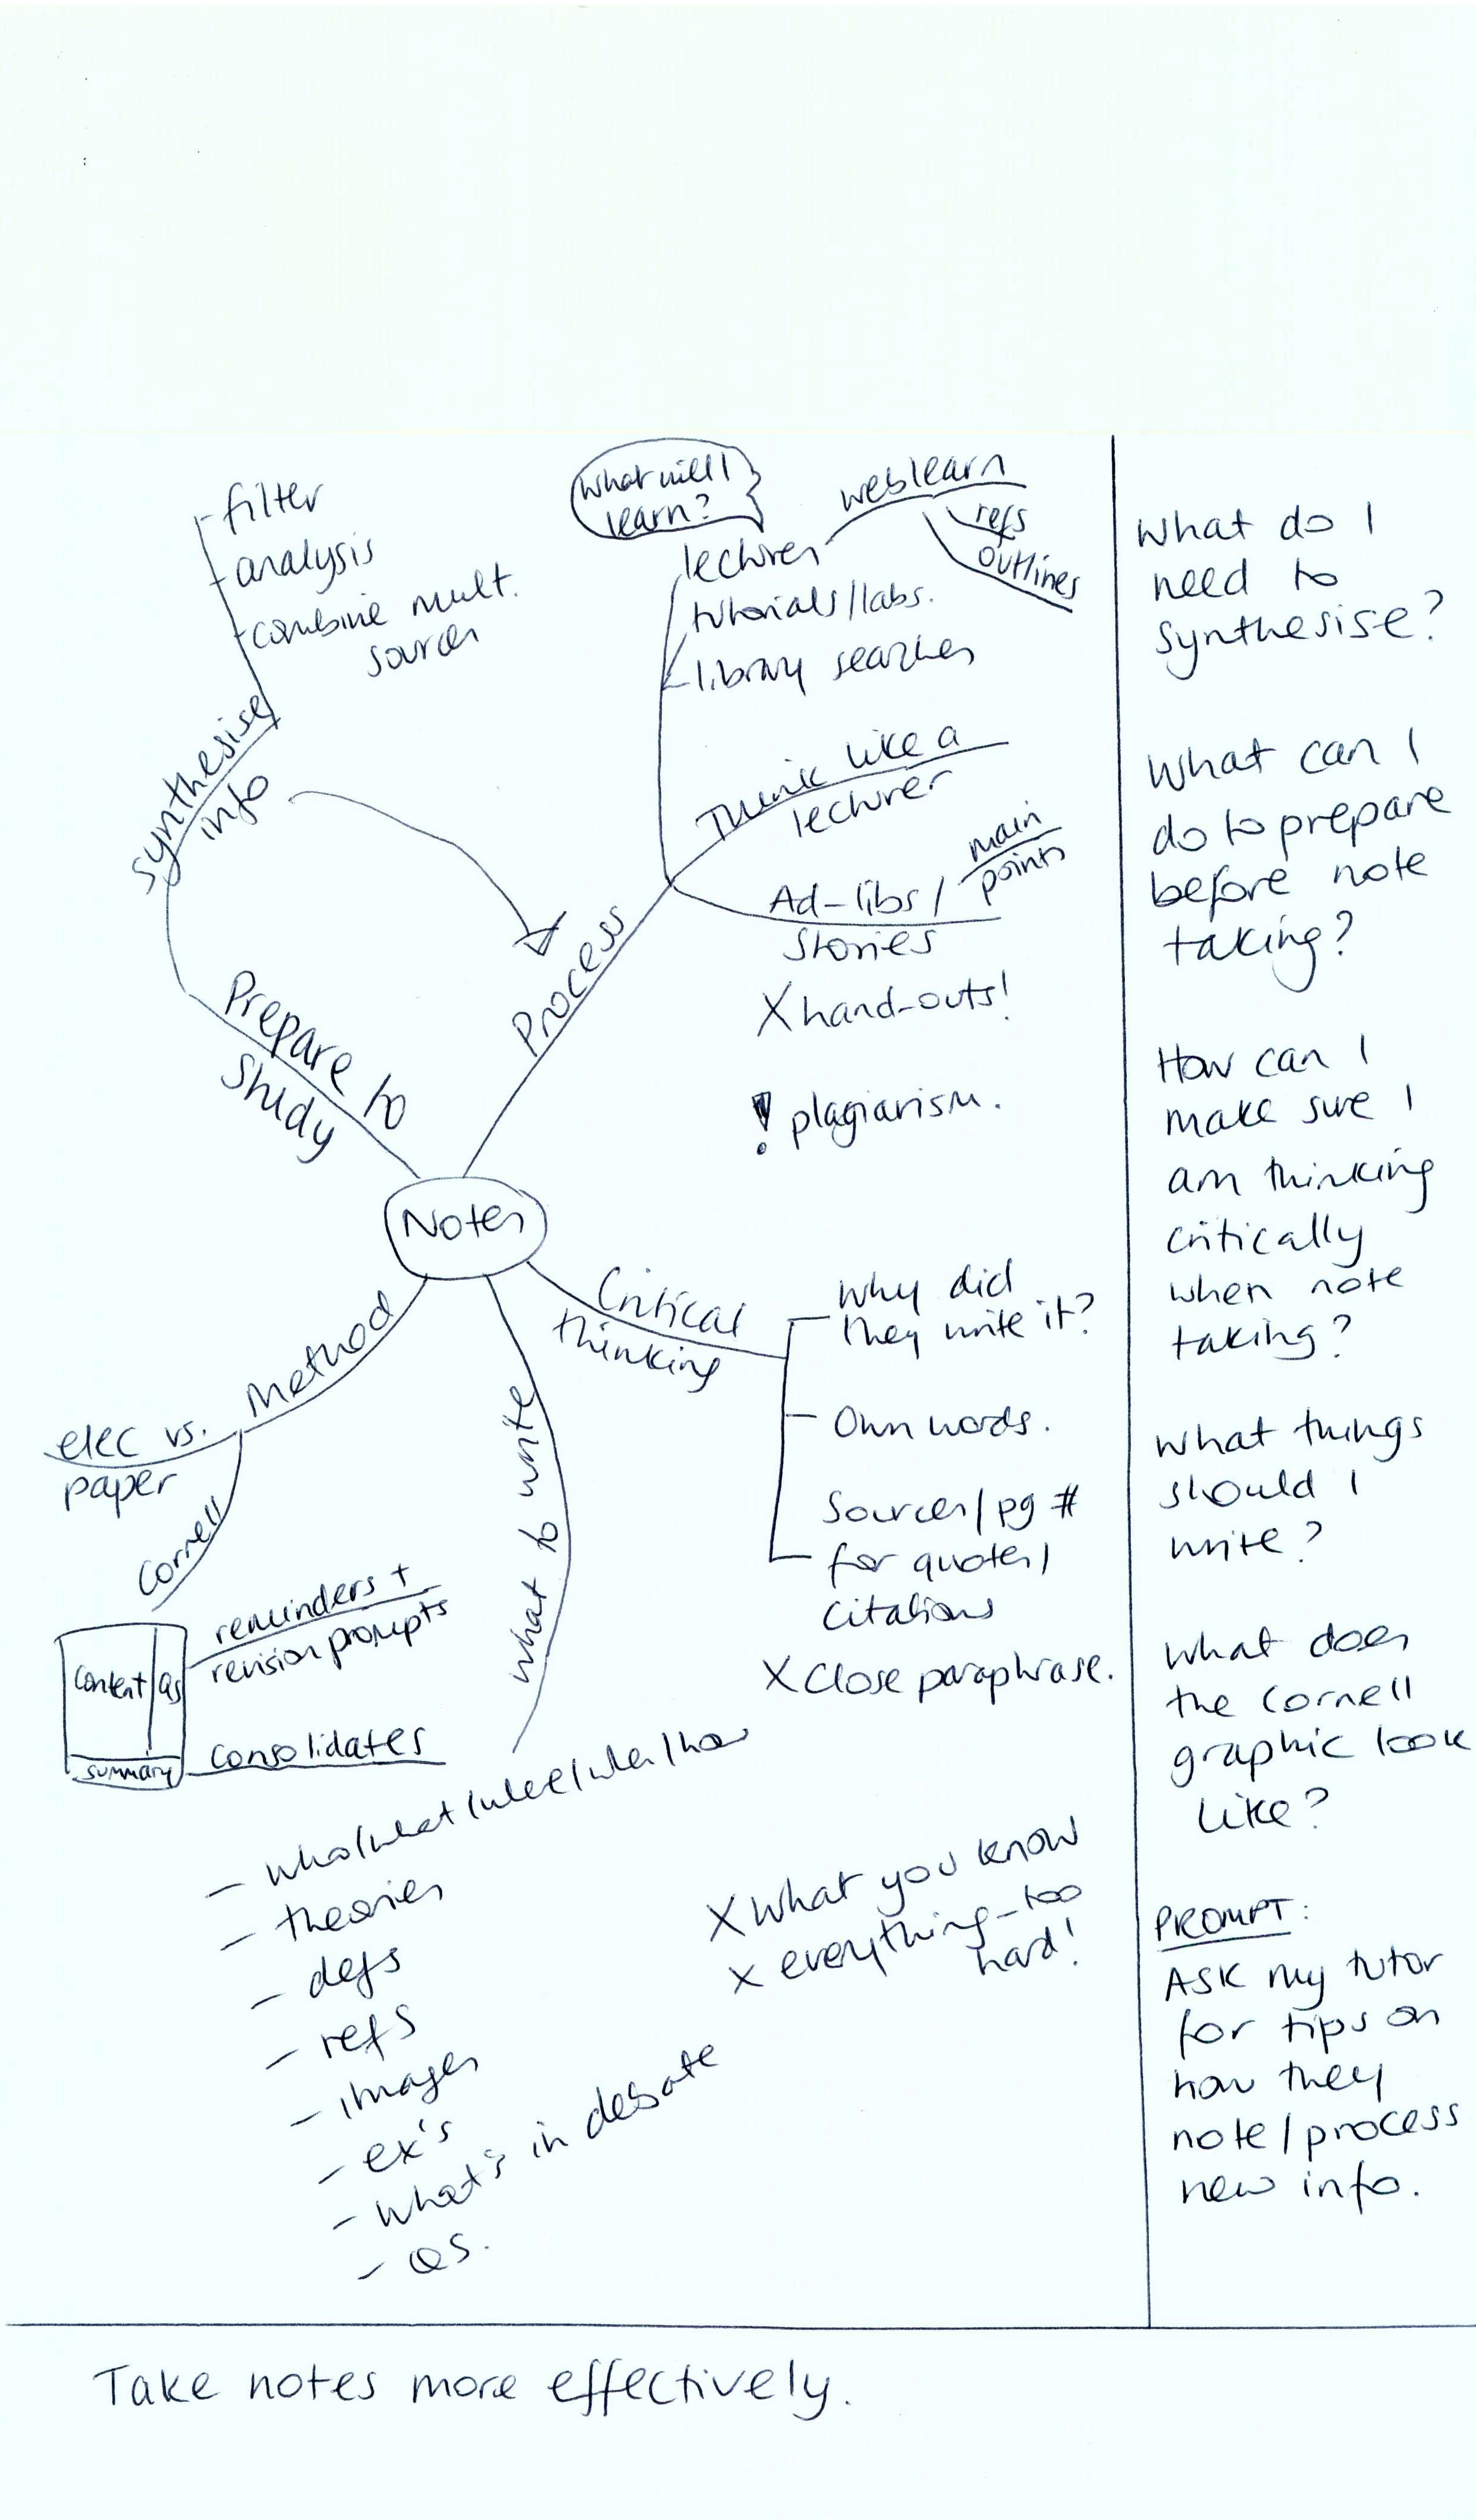 filter
analysis
combine mult.
sources
synthesise
info
Prepare to
study
What will I
learn?
lectures
weblearn
refs
outlines
tutorials/labs.
library searches
Think like a
lecturer
Ad-libs /
stories
main
points
X hand-outs!
Process
! plagiarism.
Notes
Critical
thinking
Why did
they write it?
Own words.
Sources/pg #
for quotes/
citations
X Close paraphrase.
Method
elec vs.
paper
Cornell
Content
Qs
summary
reminders +
revision prompts
consolidates
what to write
- who/what/where/when/how
- theories
- defs
- refs
- images
- ex's
- what's in debate
- Qs.
X What you know
X everything - too
hard!
What do I
need to
synthesise?
What can I
do to prepare
before note
taking?
How can I
make sure I
am thinking
critically
when note
taking?
What things
should I
write?
What does
the Cornell
graphic look
like?
PROMPT:
Ask my tutor
for tips on
how they
note/process
new info.
Take notes more effectively.